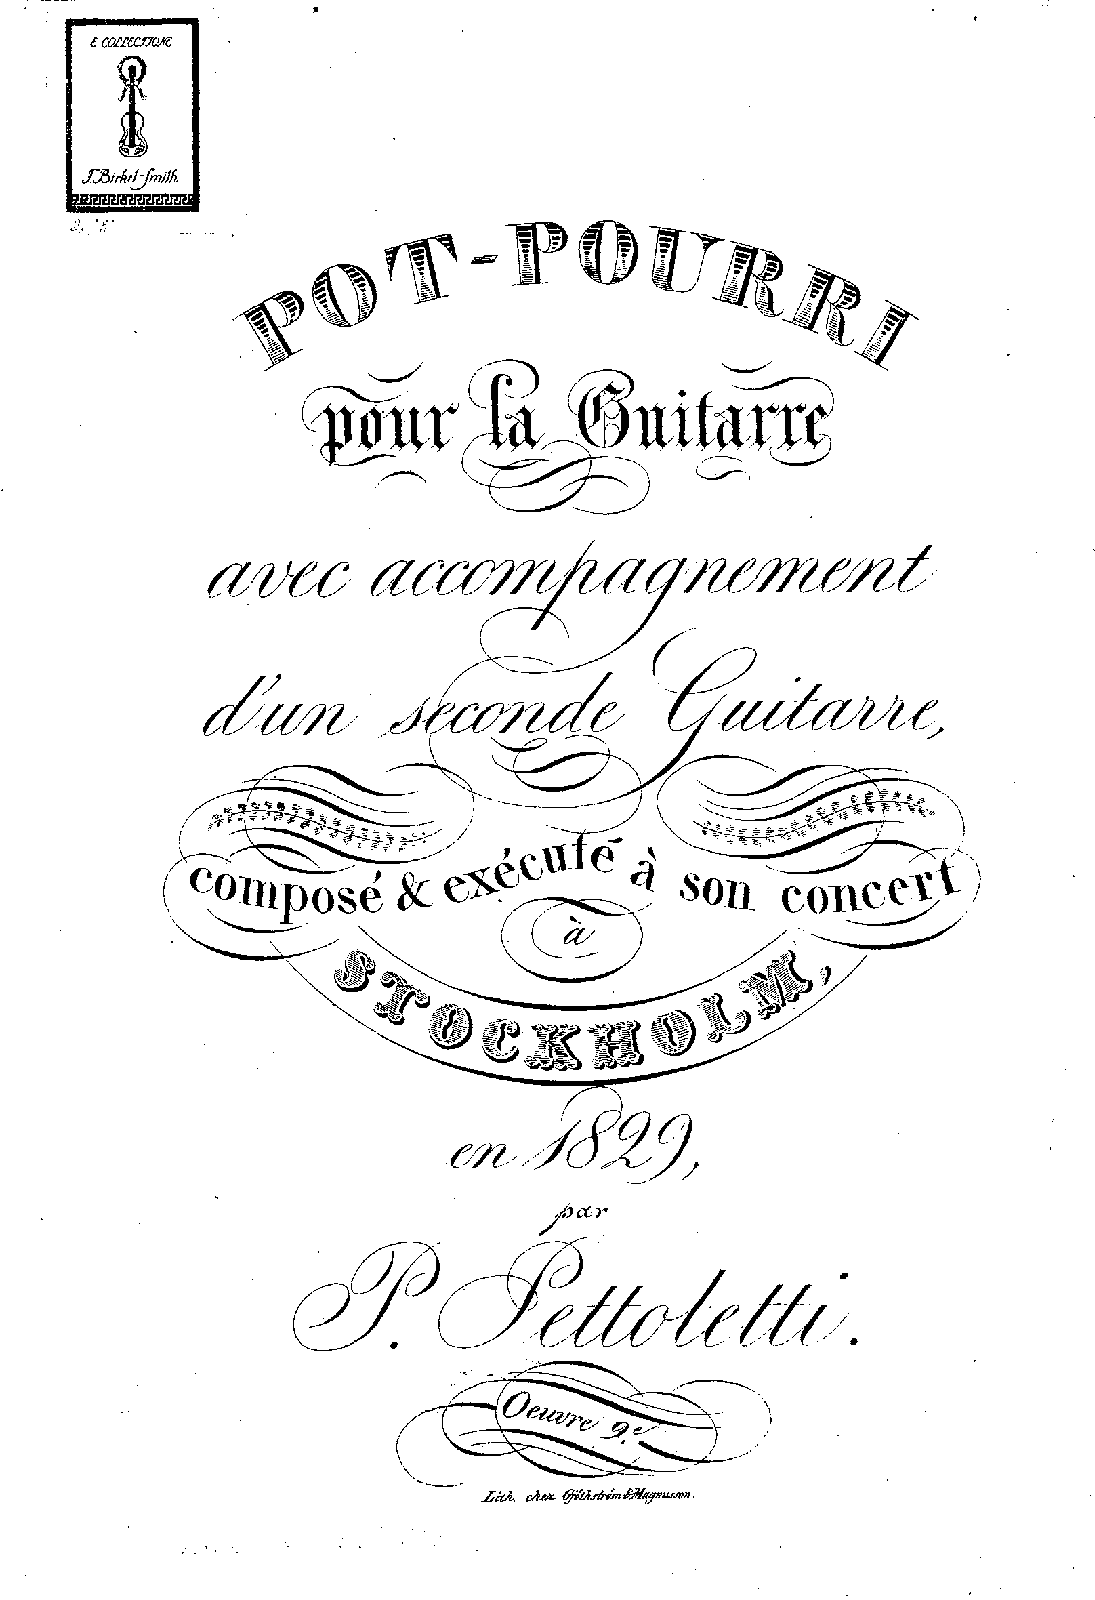 E COLLECTIONE
F. Birket-Smith.
POT-POURRI
pour la Guitarre
avec accompagnement
d'un seconde Guitarre,
composé & exécuté à son concert
à
STOCKHOLM,
en 1829,
par
P. Pettoletti.
Oeuvre 9.e
Lith. chez Gjöthström & Magnusson.